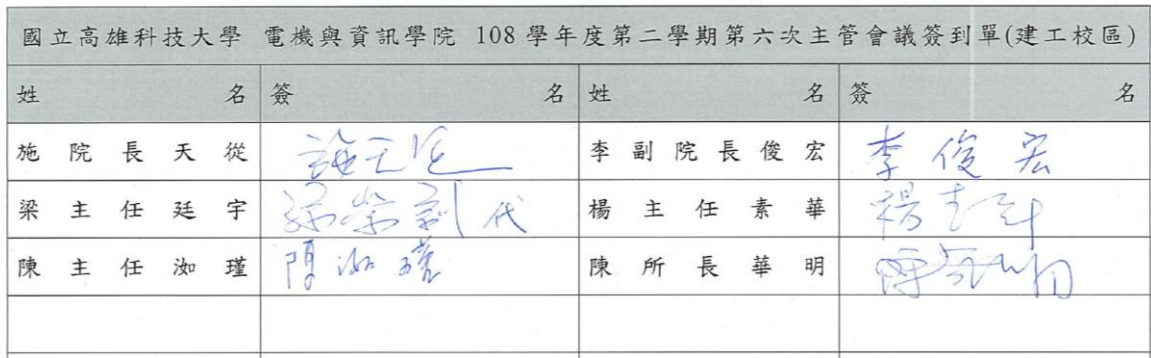 國立高雄科技大學 電機與資訊學院 108 學年度第二學期第六次主管會議簽到單(建工校區)
姓名 簽名 姓名 簽名
施院長天從 施天從 李副院長俊宏 李俊宏
梁主任廷宇 代 楊主任素華 楊素華
陳主任洳瑾 陳洳瑾 陳所長華明 陳華明